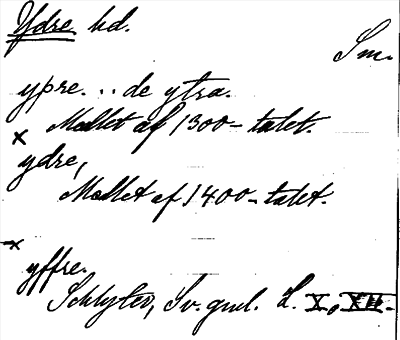 Ydre hd.
Sm.
ypre. .. de ytra.
x Mallet af 1300-talet.
ydre,
Mallet af 1400-talet.
x
yffre.
Schlyter, Sv. gml. L. X, XII.